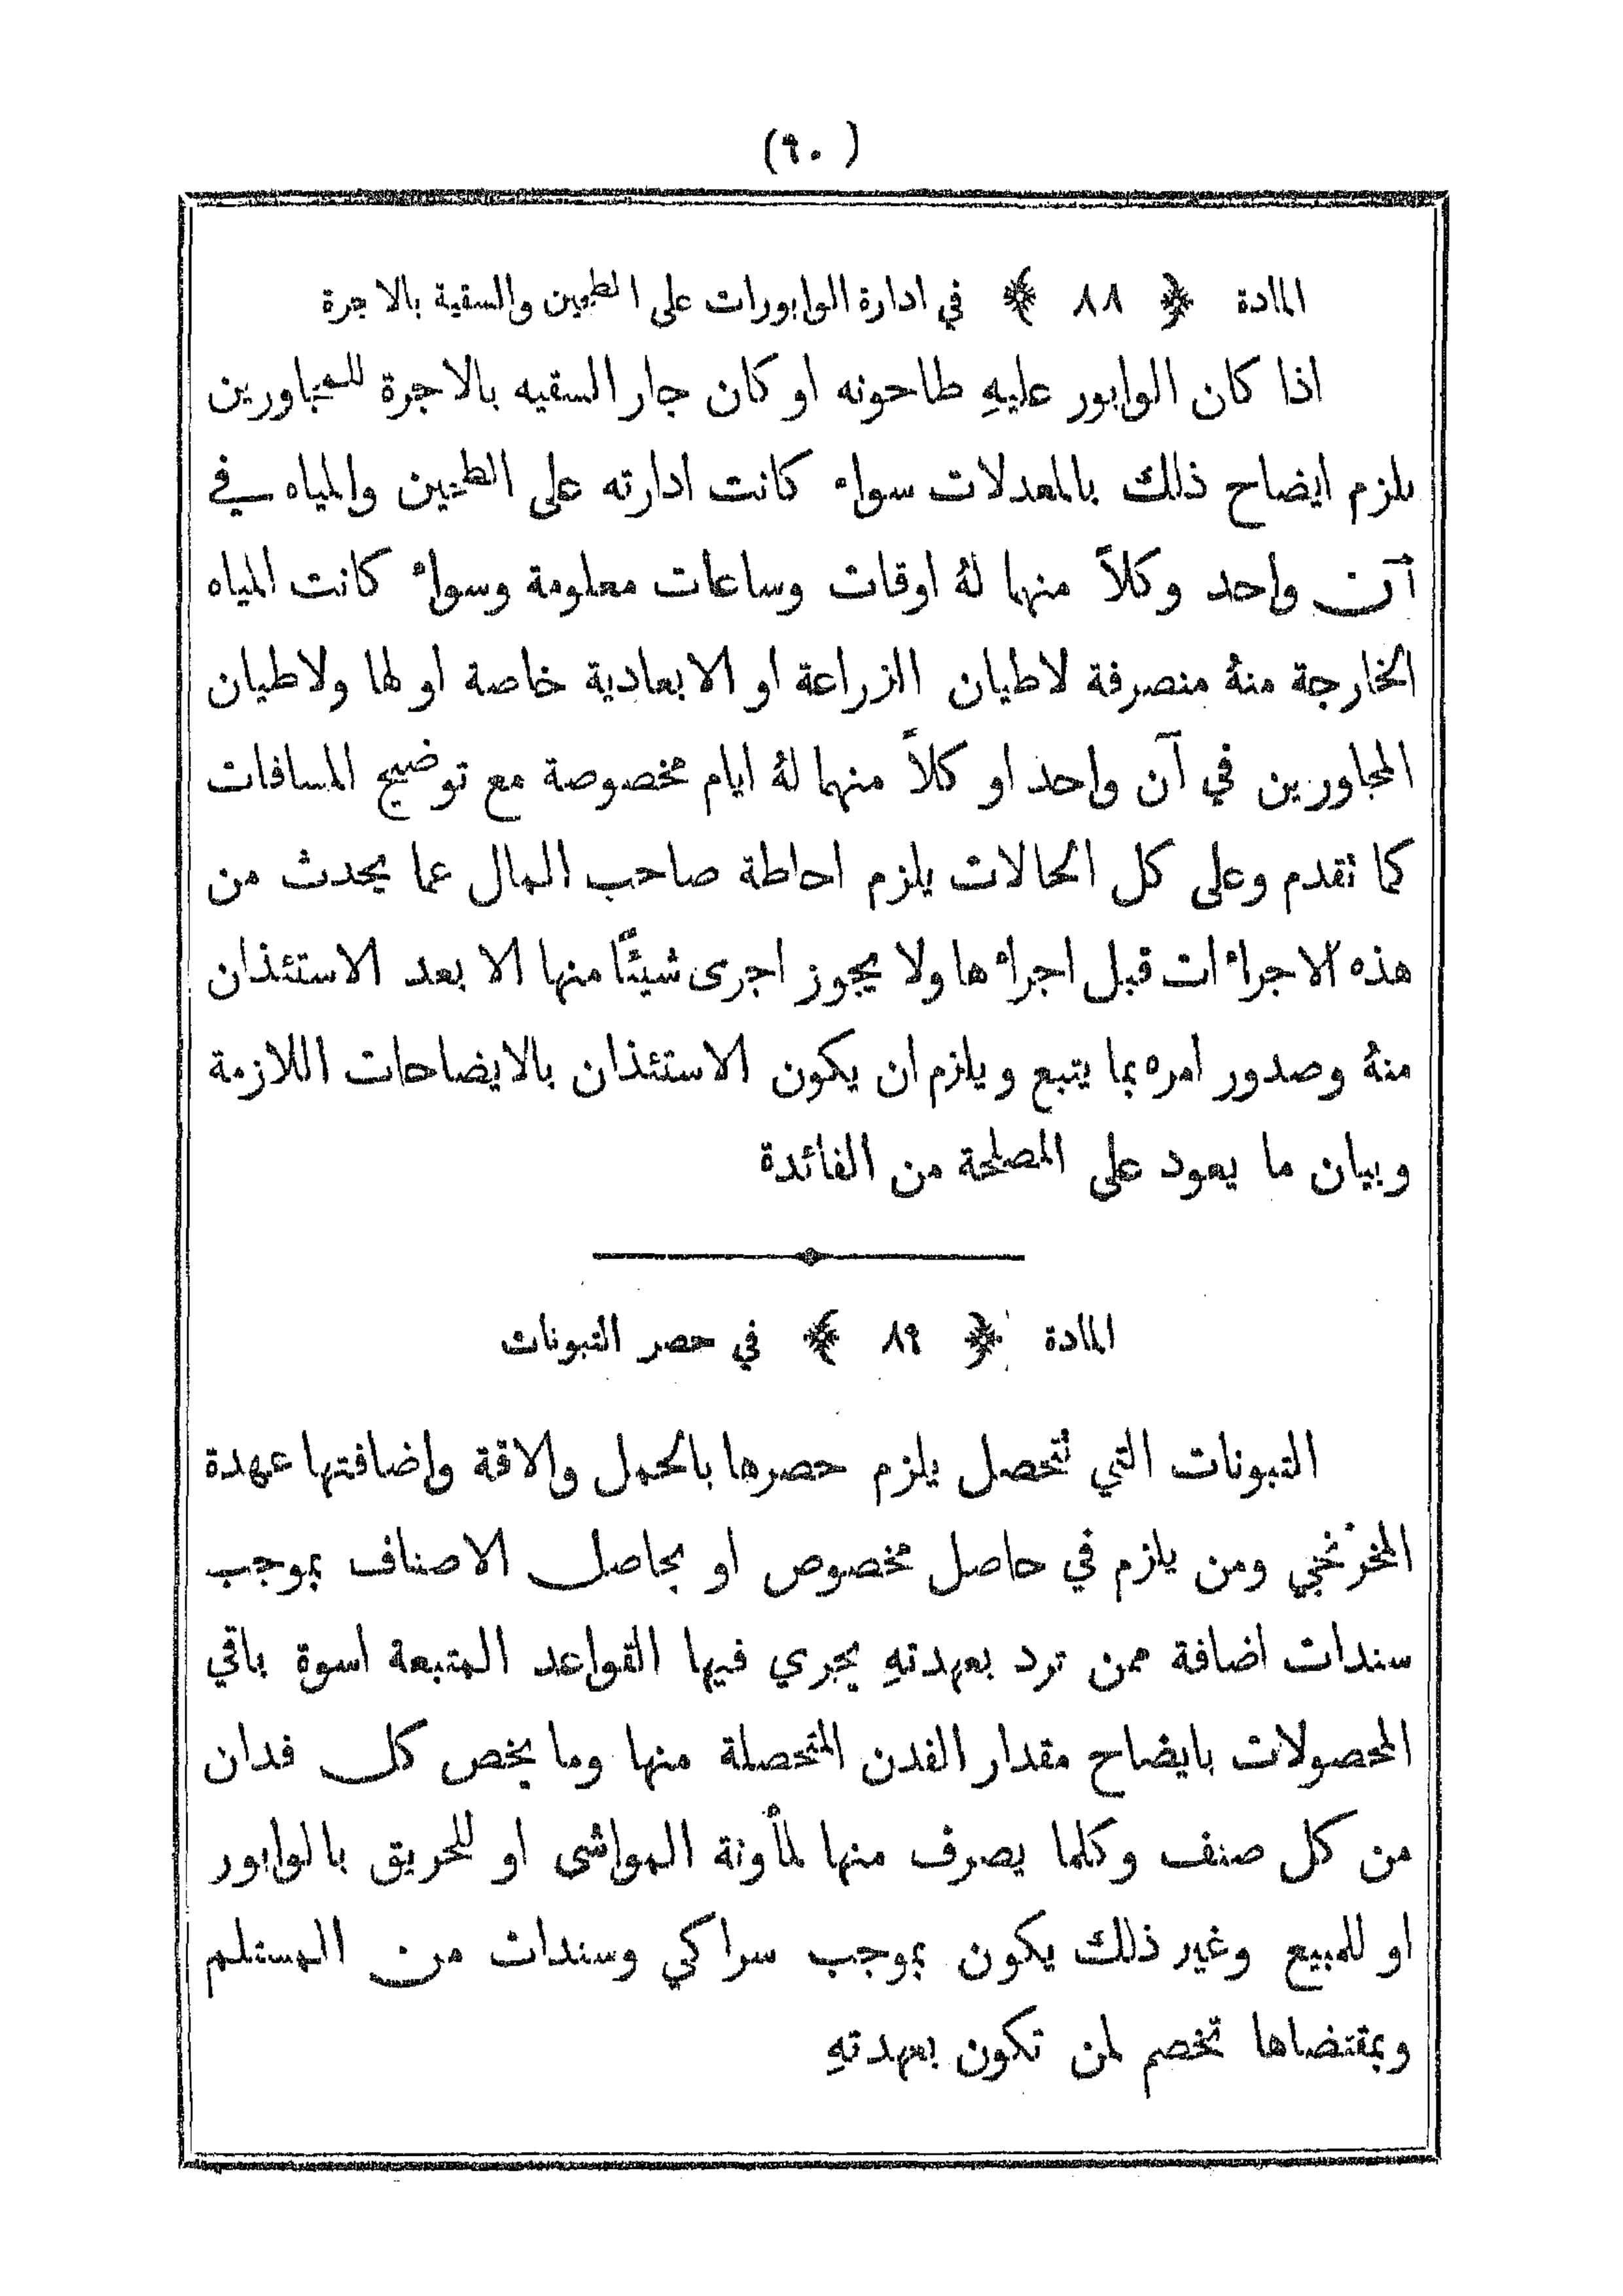 (٩٠)
المادة ﴿ ٨٨ ﴾ في ادارة الوابورات على الطحين والسقية بالاجرة
اذا كان الوابور عليهِ طاحونه او كان جار السقيه بالاجرة للمجاورين
يلزم ايضاح ذلك بالمعدلات سواء كانت ادارته على الطحين والمياه في
آن واحد وكلاً منهما لهُ اوقات وساعات معلومة وسواء كانت المياه
الخارجة منهُ منصرفة لاطيان الزراعة او الابعادية خاصة او لها ولاطيان
المجاورين في آن واحد او كلاً منهما لهُ ايام مخصوصة مع توضيح المسافات
كما تقدم وعلى كل الحالات يلزم احاطة صاحب المال عما يحدث من
هذه الاجراءات قبل اجراءها ولا يجوز اجرى شيئًا منها الا بعد الاستئذان
منهُ وصدور امره بما يتبع ويلزم ان يكون الاستئذان بالايضاحات اللازمة
وبيان ما يعود على المصلحة من الفائدة
المادة ﴿ ٨٩ ﴾ في حصر التبونات
التبونات التي تتحصل يلزم حصرها بالحمل والاقة واضافتها عهدة
المخزنجي ومن يلزم في حاصل مخصوص او بحاصل الاصناف بموجب
سندات اضافة ممن ترد بعهدتهِ يجري فيها القواعد المتبعة اسوة باقي
المحصولات بايضاح مقدار الفدن المتحصلة منها وما يخص كل فدان
من كل صنف وكلما يصرف منها لمأونة المواشى او للحريق بالوابور
او للمبيع وغير ذلك يكون بموجب سراكي وسندات من المستلم
وبمقتضاها تخصم لمن تكون بعهدتهِ